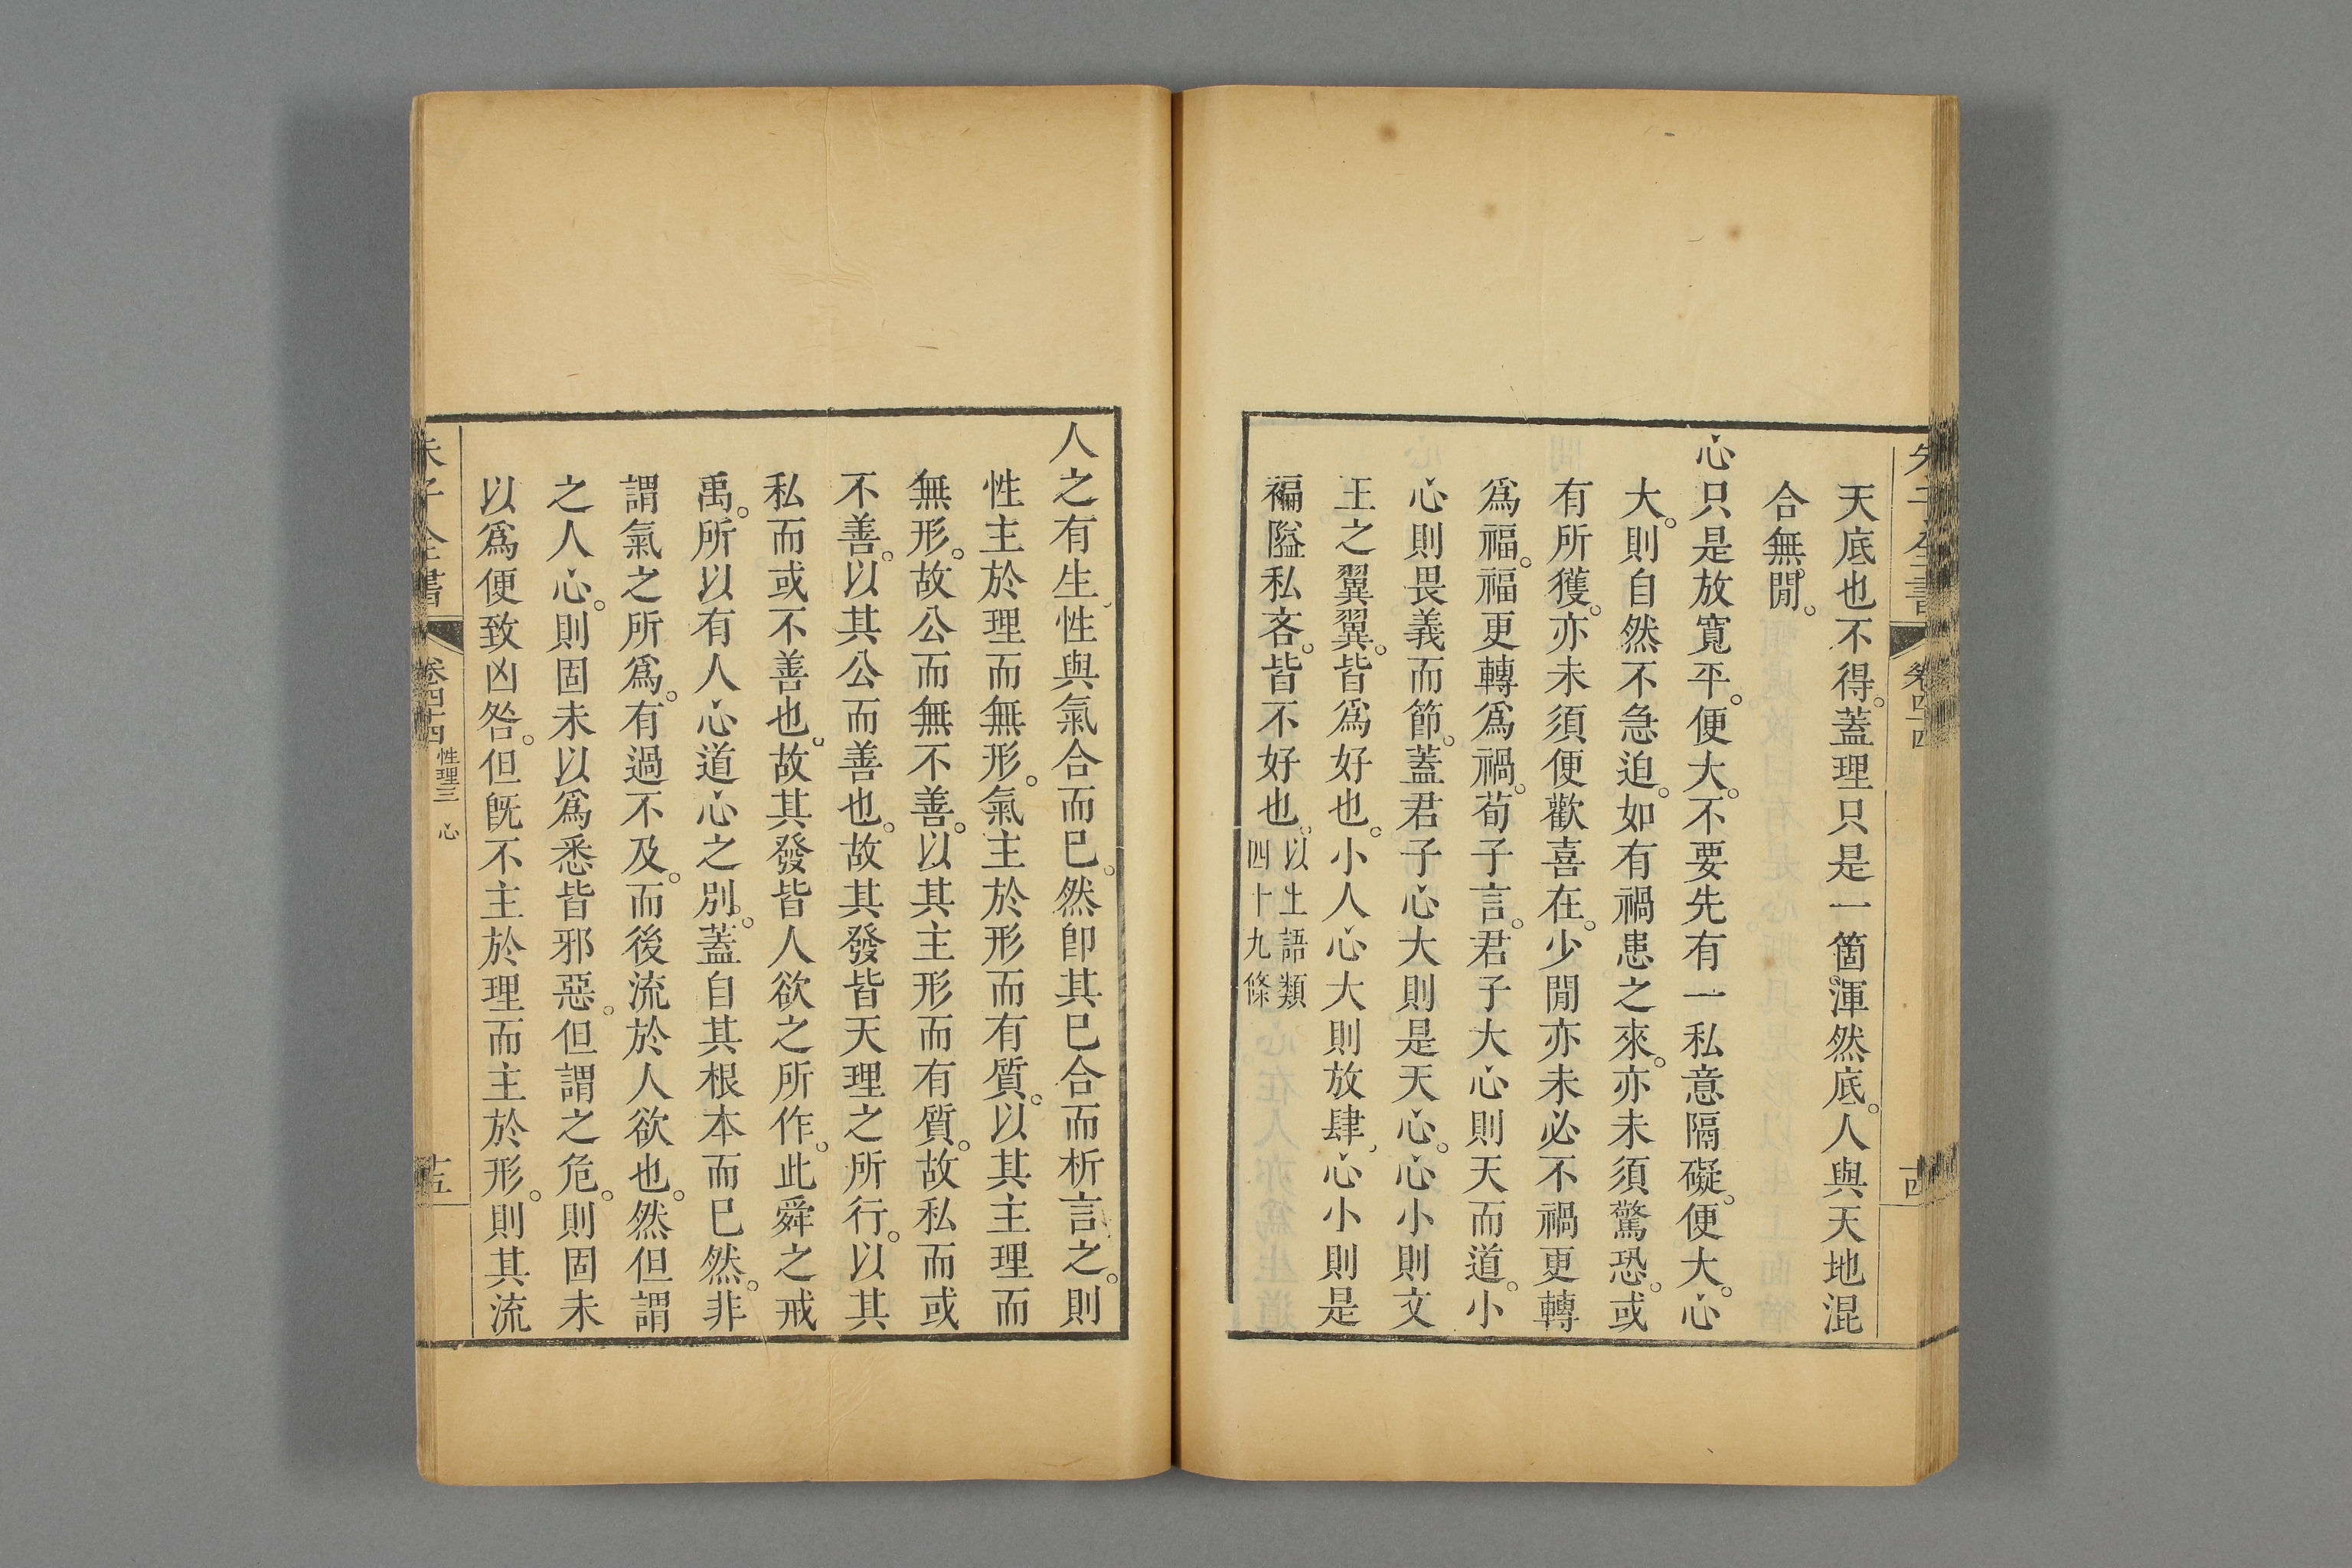 天底也不得。蓋理只是一箇。渾然底。人與天地混
合無閒。
心只是放寬平。便大。不要先有一私意隔礙。便大。心
大。則自然不急迫。如有禍患之來。亦未須驚恐。或
有所獲。亦未須便歡喜在。少閒亦未必不禍更轉
爲福。福更轉爲禍。荀子言。君子大心則天而道。小
心則畏義而節。蓋君子心大則是天心。心小則文
王之翼翼。皆爲好也。小人心大則放肆、心小則是
褊隘私吝。皆不好也。
以上語類
四十九條
人之有生、性與氣合而已。然卽其已合而析言之。則
性主於理而無形。氣主於形而有質。以其主理而
無形。故公而無不善。以其主形而有質。故私而或
不善。以其公而善也。故其發皆天理之所行。以其
私而或不善也。故其發皆人欲之所作。此舜之戒
禹。所以有人心道心之別。蓋自其根本而已然。非
謂氣之所爲。有過不及。而後流於人欲也。然但謂
之人心。則固未以爲悉皆邪惡。但謂之危。則固未
以爲便致凶咎。但旣不主於理而主於形。則其流
朱子全書
卷四十四
性理三 心
十五